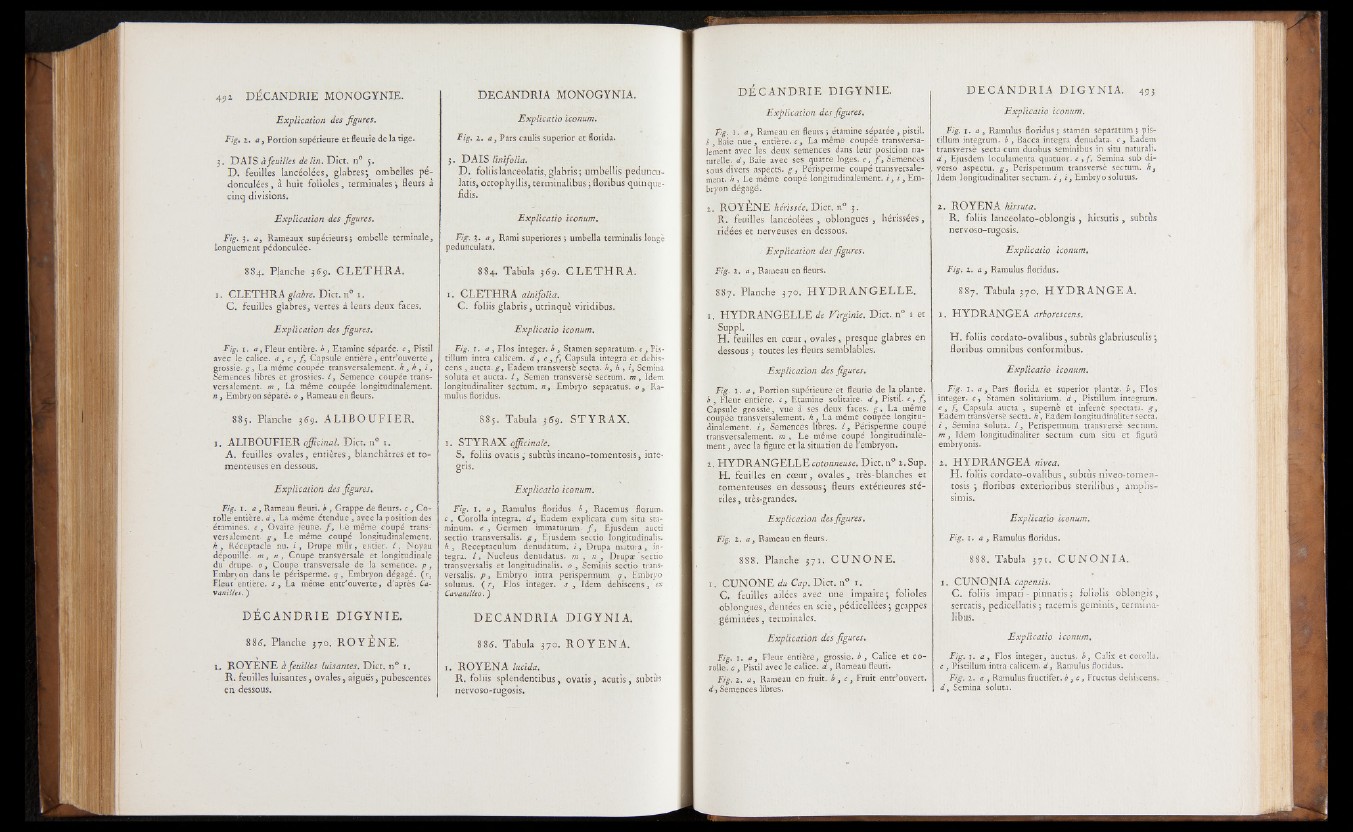 492 DÉCANDRIE MONOGYNIE.
Explication des figures.
Fig. 2. a, Portion supérieure et fleurie de la tige.
3. DAIS à feuilles de lin. Dict. n° 3.
D. feuilles lancéolées, glabres; ombelles pé-
donculées, à huit folioles, terminales; fleurs à
cinq divisions.
Explication des figures.
Fig. 3. a, Rameaux supérieurs; ombelle terminale,
longuement pédonculée.
884. Planche 369. CLETHRA.
1. CLETHRA glabre. Dict. n° 1.
C. feuilles glabres, vertes à leurs deux faces.
Explication des figures.
Fig. 1. a, Fleur entière. b, Etamine séparée. c, Pistil
avec le calice. d, e, f, Capsule entière, entr'ouverte,
grossie. g, La même coupée transversalement. h, h, i,
Semences libres et grossies. l, Semence coupée trans-
versalement. m, La même coupée longitudinalement.
n, Embryon séparé. o, Rameau en fleurs.
885. Planche 369. ALIBOUFIER.
1. ALIBOUFIER officinal. Dict. n° 1.
A. feuilles ovales, entières, blanchâtres et to-
menteuses en dessous.
Explication des figures.
Fig. 1. a, Rameau fleuri. b, Grappe de fleurs. c, Co-
rolle entière. d, La même étendue, avec la position des
étamines. e, Ovaire jeune. f, Le même coupé trans-
versalement. g, Le même coupé longitudinalement.
h, Réceptacle nu. i, Drupe mûr, entier. l, Noyau
dépouillé. m, n, Coupe transversale et longitudinale
du drupe. o, Coupe transversale de la semence. p,
Embryon dans le périsperme. q, Embryon dégagé. (r,
Fleur entière. s, La même entr'ouverte, d'après Ca-
vanilles.)
DÉCANDRIE DIGYNIE.
886. Planche 370. ROYÈNE.
1. ROYÈNE à feuilles luisantes. Dict. n° 1.
R. feuilles luisantes, ovales, aiguës, pubescentes
en dessous.
DECANDRIA MONOGYNIA.
Explicatio iconum.
Fig. 2. a, Pars caulis superior et florida.
3. DAIS linifolia.
D. foliis lanceolatis, glabris; umbellis peduncu-
latis, octophyllis, terminalibus; floribus quinque-
fidis.
Explicatio iconum.
Fig. 3. a, Rami superiores; umbella terminalis longè
pedunculata.
884. Tabula 369. CLETHRA.
1. CLETHRA alnifolia.
C. foliis glabris, utrinquè viridibus.
Explicatio iconum.
Fig. 1. a, Flos integer. b, Stamen separatum. c, Pis-
tillum intra calicem. d, e, f, Capsula integra et dehis-
cens, aucta. g, Eadem transversè secta. h, h, i, Semina
soluta et aucta. l, Semen transversè sectum. m, Idem
longitudinaliter sectum. n, Embryo separatus. o, Ra-
mulus floridus.
885. Tabula 369. STYRAX.
1. STYRAX officinale.
S. foliis ovatis, subtùs incano-tomentosis, inte-
gris.
Explicatio iconum.
Fig. 1. a, Ramulus floridus. b, Racemus florum.
c, Corolla integra. d, Eadem explicata cum situ sta-
minum. e, Germen immaturum. f, Ejusdem aucti
sectio transversalis. g, Ejusdem sectio longitudinalis.
h, Receptaculum denudatum. i, Drupa matura, in-
tegra. l, Nucleus denudatus. m, n, Drupæ sectio
transversalis et longitudinalis. o, Seminis sectio trans-
versalis. p, Embryo intra perispermum. q, Embryo
solutus. (r, Flos integer. s, Idem dehiscens, ex
Cavanilles.)
DECANDRIA DIGYNIA.
886. Tabula 370. ROYENA.
1. ROYENA lucida.
R. foliis splendentibus, ovatis, acutis, subtùs
nervoso-rugosis.
DÉCANDRIE DIGYNIE.
Explication des figures.
Fig. 1. a, Rameau en fleurs; étamine séparée, pistil.
b, Baie nue, entière. c, La même coupée transversa-
lement avec les deux semences dans leur position na-
turelle. d, Baie avec ses quatre loges. e, f, Semences
sous divers aspects. g, Périsperme coupé transversale-
ment. h, Le même coupé longitudinalement. i, i, Em-
bryon dégagé.
2. ROYÈNE hérissée. Dict. n° 3.
R. feuilles lancéolées, oblongues, hérissées,
ridées et nerveuses en dessous.
Explication des figures.
Fig. 2. a, Rameau en fleurs.
887. Planche 370. HYDRANGELLE.
1. HYDRANGELLE de Virginie. Dict. n° 1 et
Suppl.
H. feuilles en cœur, ovales, presque glabres en
dessous; toutes les fleurs semblables.
Explication des figures.
Fig. 1. a, Portion supérieure et fleurie de la plante.
b, Fleur entière. c, Etamine solitaire. d, Pistil. e, f,
Capsule grossie, vue à ses deux faces. g, La même
coupée transversalement. h, La même coupée longitu-
dinalement. i, Semences libres. l, Périsperme coupé
transversalement. m, Le même coupé longitudinale-
ment, avec la figure et la situation de l'embryon.
2. HYDRANGELLE cotonneuse. Dict. n° 2. Sup.
H. feuilles en cœur, ovales, très-blanches et
tomenteuses en dessous; fleurs extérieures sté-
riles, très-grandes.
Explication des figures.
Fig. 2. a, Rameau en fleurs.
888. Planche 371. CUNONE.
1. CUNONE du Cap. Dict. n° 1.
C. feuilles ailées avec une impaire; folioles
oblongues, dentées en scie, pédicellées; grappes
géminées, terminales.
Explication des figures.
Fig. 1. a, Fleur entière, grossie. b, Calice et co-
rolle. c, Pistil avec le calice. d, Rameau fleuri.
Fig. 2. a, Rameau en fruit. b, c, Fruit entr'ouvert.
d, Semences libres.
DECANDRIA DIGYNIA. 493
Explicatio iconum.
Fig. 1. a, Ramulus floridus; stamen separatum; pis-
tillum integrum. b, Bacca integra denudata. c, Eadem
transversè secta cum duobus seminibus in situ naturali.
d, Ejusdem loculamenta quatuor. e, f, Semina sub di-
verso aspectu. g, Perispermum transversè sectum. h,
Idem longitudinaliter sectum. i, i, Embryo solutus.
2. ROYENA hirsuta.
R. foliis lanceolato-oblongis, hirsutis, subtùs
nervoso-rugosis.
Explicatio iconum.
Fig. 2. a, Ramulus floridus.
887. Tabula 370. HYDRANGEA.
1. HYDRANGEA arborescens.
H. foliis cordato-ovalibus, subtùs glabriusculis;
floribus omnibus conformibus.
Explicatio iconum.
Fig. 1. a, Pars florida et superior plantæ. b, Flos
integer. c, Stamen solitarium. d, Pistillum integrum.
e, f, Capsula aucta, supernè et infernè spectata. g,
Eadem transversè secta. h, Eadem longitudinaliter secta.
i, Semina soluta. l, Perispermum transversè sectum.
m, Idem longitudinaliter sectum cum situ et figurâ
embryonis.
2. HYDRANGEA nivea.
H. foliis cordato-ovalibus, subtùs niveo-tomen-
tosis; floribus exterioribus sterilibus, amplis-
simis.
Explicatio iconum.
Fig. 1. a, Ramulus floridus.
888. Tabula 371. CUNONIA.
1. CUNONIA capensis.
C. foliis impari-pinnatis; foliolis oblongis,
serratis, pedicellatis; racemis geminis, termina-
libus.
Explicatio iconum.
Fig. 1. a, Flos integer, auctus. b, Calix et corolla.
c, Pistillum intra calicem. d, Ramulus floridus.
Fig. 2. a, Ramulus fructifer. b, c, Fructus dehiscens.
d, Semina soluta.